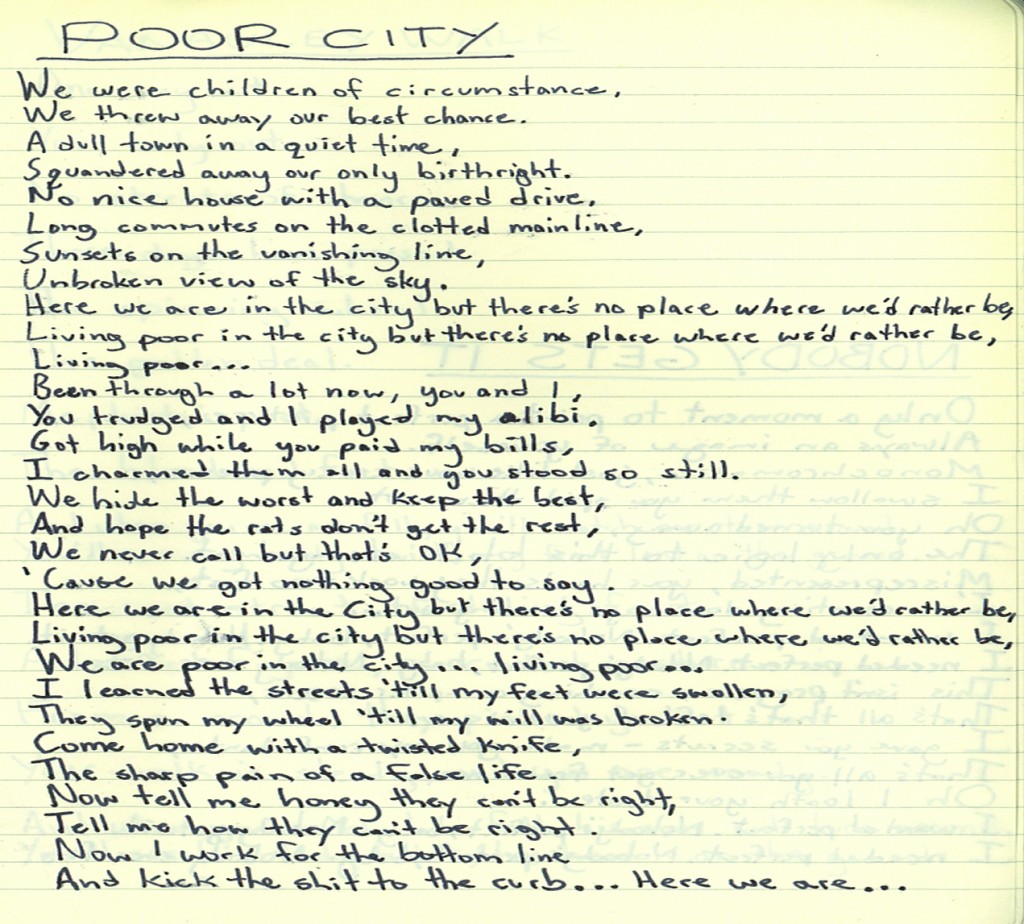 POOR CITY
We were children of circumstance,
We threw away our best chance.
A dull town in a quiet time,
Squandered away our only birthright.
No nice house with a paved drive,
Long commutes on the clotted mainline,
Sunsets on the vanishing line,
Unbroken view of the sky.
Here we are in the city but there's no place where we'd rather be,
Living poor in the city but there's no place where we'd rather be,
Living poor...
Been through a lot now, you and I,
You trudged and I played my alibi.
Got high while you paid my bills,
I charmed them all and you stood so still.
We hide the worst and keep the best,
And hope the rats don't get the rest,
We never call but that's OK,
'Cause we got nothing good to say.
Here we are in the City but there's no place where we'd rather be,
Living poor in the city but there's no place where we'd rather be,
We are poor in the city... living poor...
I learned the streets 'till my feet were swollen,
They spun my wheel 'till my will was broken.
Come home with a twisted knife,
The sharp pain of a false life.
Now tell me honey they can't be right,
Tell me how they can't be right.
Now I work for the bottom line
And kick the shit to the curb... Here we are...